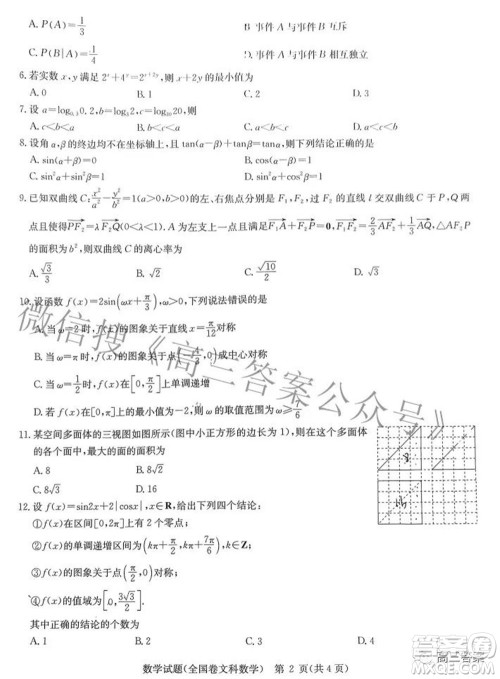 A.P(A)=1/3 B.事件 A 与事件 B 互斥
C.P(B|A)=1/4 D.事件 A 与事件 B 相互独立
6.若实数 x,y 满足 2ˣ+4ʸ=2ˣ⁺²ʸ,则 x+2y 的最小值为
A.0 B.1 C.2 D.3
7.设 a=log₀.₃0.2,b=log₈2,c=log₁₀20,则
A.c<b<a B.b<a<c C.a<b<c D.b<c<a
8.设角 α,β 的终边均不在坐标轴上,且 tan(α−β)+tanβ=tanα,则下列结论正确的是
A.sin(α+β)=0 B.cos(α−β)=1
C.sin²α+sin²β=1 D.sin²α+cos²β=1
9.已知双曲线 C:x²/a²−y²/b²=1(a>0,b>0)的左、右焦点分别是 F₁,F₂,过 F₂ 的直线 l 交双曲线 C 于 P,Q 两
点且使得PF₂=λF₂Q(0<λ<1).A 为左支上一点且满足F₁A+F₂P=0,F₁F₂=2/3AF₂+1/3AQ,△AF₂P
的面积为 b²,则双曲线 C 的离心率为
A.√3/3 B.√2 C.√10/2 D.√3
10.设函数 f(x)=2sin(ωx+π/3),ω>0,下列说法错误的是
A.当 ω=2 时,f(x)的图象关于直线 x=π/12对称
B.当 ω=π 时,f(x)的图象关于点(π/3,0)成中心对称
C.当 ω=1/2时,f(x)在[0,π/2]上单调递增
D.若 f(x)在[0,π]上的最小值为−2,则 ω 的取值范围为 ω≥7/6
11.某空间多面体的三视图如图所示(图中小正方形的边长为 1),则在此多面体
的各个面中,最大的面的面积为
A.8 B.8√2
C.8√3 D.16
12.设 f(x)=sin2x+2|cosx|,x∈R,给出下列四个结论:
①f(x)在区间[0,2π]上有 2 个零点;
②f(x)的单调递增区间为(kπ+π/2,kπ+7π/6),k∈Z;
③f(x)的图象关于点(π/2,0)对称;
④f(x)的值域为[0,3√3/2].
其中正确的结论的个数为
A.1 B.2 C.3 D.4
数学试题(全国卷文科数学) 第 2 页(共 4 页)
微信搜《高三答案公众号》
高三答案